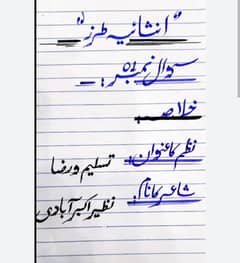 "انشائیہ طرز"
سوال نمبر 01:-
خلاصہ:
نظم کا عنوان: تسلیم و رضا
شاعر کا نام: نظیر اکبر آبادی